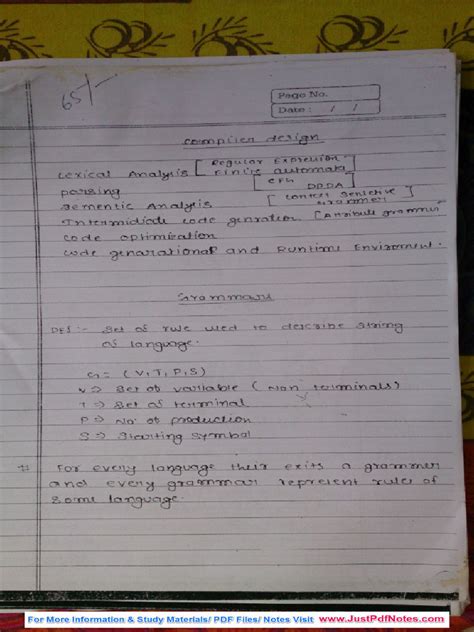 65/-
Page No.
Date : / /
compiler design
Lexical Analysis [ Regular Expression
Finite automata
parsing [ CFG DPDA
Sementic Analysis [ Context sensetive grammer
Intermidiode code genration [Attribute grammer
code optimization
code genarational and Runtime Enviroment.
Grammars
DEF :- Set of rule used to describe string
of language.
G = (V, T, P, S)
V => Set of vailable ( Non terminals)
T => Set of terminal
P => No of production
S => Starting Symbol
For every language their exits a grammer
and every grammar represent rules of
some language.
For More Information & Study Materials/ PDF Files/ Notes Visit www.JustPdfNotes.com